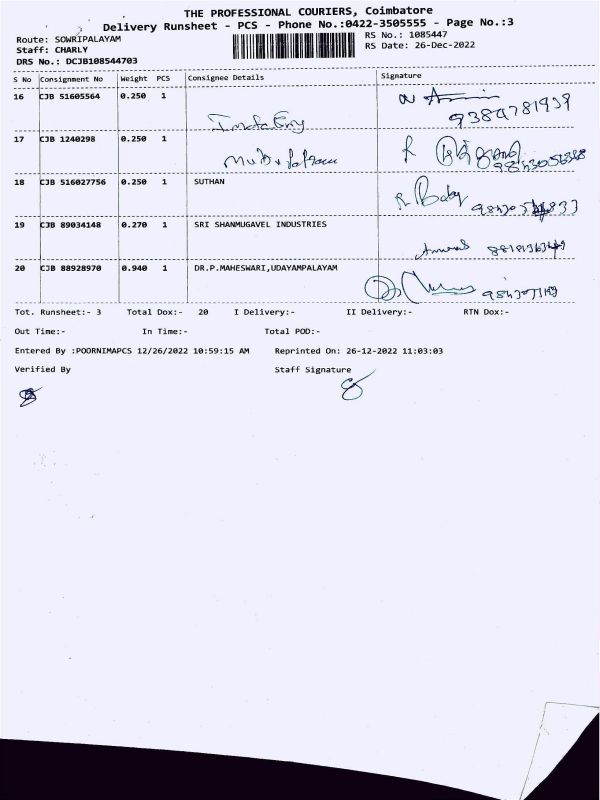 THE PROFESSIONAL COURIERS, Coimbatore
Delivery Runsheet - PCS - Phone No.:0422-3505555 - Page No.:3
Route: SOWRIPALAYAM
RS No.: 1085447
Staff: CHARLY
RS Date: 26-Dec-2022
DRS No.: DCJB108544703
S No Consignment No Weight PCS Consignee Details Signature
16 CJB 51605564 0.250 1
9389781939
17 CJB 1240298 0.250 1
18 CJB 516027756 0.250 1 SUTHAN
R Baby
19 CJB 89034148 0.270 1 SRI SHANMUGAVEL INDUSTRIES
20 CJB 88928970 0.940 1 DR.P.MAHESWARI,UDAYAMPALAYAM
Tot. Runsheet:- 3 Total Dox:- 20 I Delivery:- II Delivery:- RTN Dox:-
Out Time:- In Time:- Total POD:-
Entered By :POORNIMAPCS 12/26/2022 10:59:15 AM Reprinted On: 26-12-2022 11:03:03
Verified By Staff Signature